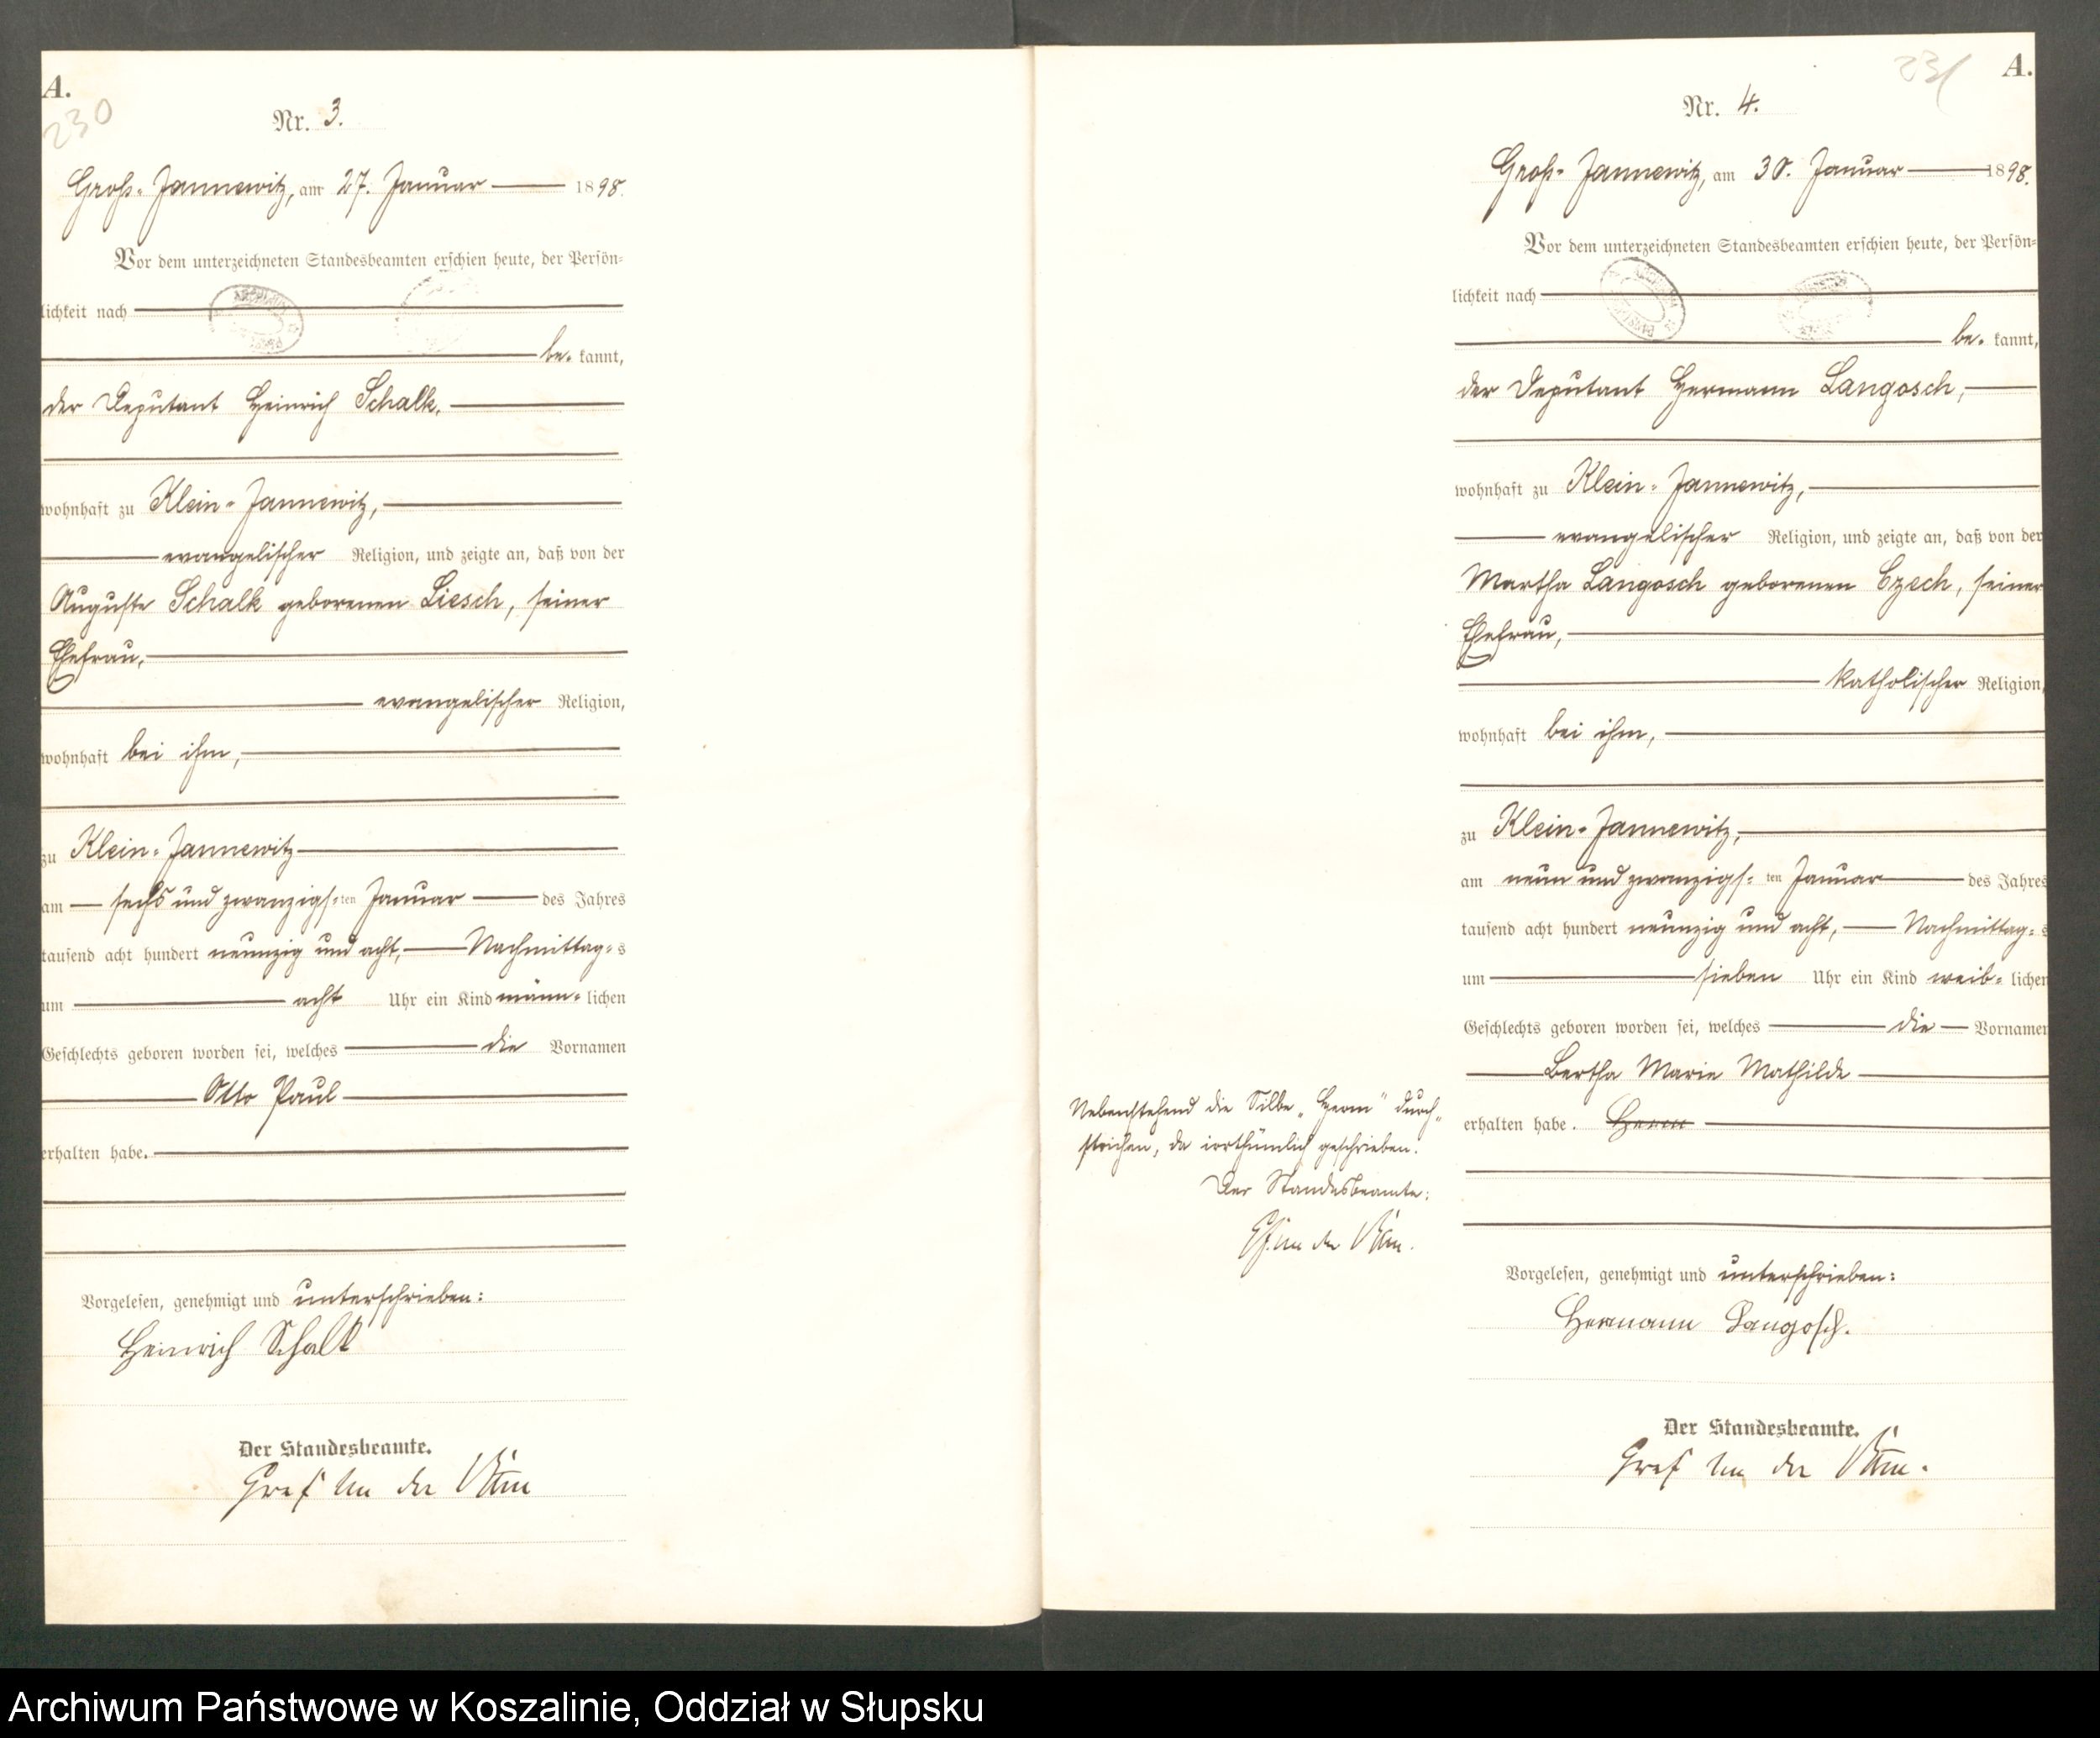 A.
230
Nr. 3.
Groß-Jannewitz, am 27. Januar 1898.
Vor dem unterzeichneten Standesbeamten erschien heute, der Persön-
lichkeit nach
be- kannt,
der Deputant Heinrich Schalk,
wohnhaft zu Klein-Jannewitz,
evangelischer Religion, und zeigte an, daß von der
Auguste Schalk geborenen Liesch, seiner
Ehefrau,
evangelischer Religion,
wohnhaft bei ihm,
zu Klein-Jannewitz
am sechs und zwanzigs-ten Januar des Jahres
tausend acht hundert neunzig und acht, Nachmittag-s
um acht Uhr ein Kind männ-lichen
Geschlechts geboren worden sei, welches die Vornamen
Otto Paul
erhalten habe.
Vorgelesen, genehmigt und unterschrieben:
Heinrich Schalk
Der Standesbeamte.
Graf von der
231
A.
Nr. 4.
Groß-Jannewitz, am 30. Januar 1898.
Vor dem unterzeichneten Standesbeamten erschien heute, der Persön-
lichkeit nach
be- kannt,
der Deputant Hermann Langosch,
wohnhaft zu Klein-Jannewitz,
evangelischer Religion, und zeigte an, daß von der
Martha Langosch geborenen Czech, seiner
Ehefrau,
katholischer Religion,
wohnhaft bei ihm,
zu Klein-Jannewitz,
am neun und zwanzigs-ten Januar des Jahres
tausend acht hundert neunzig und acht, Nachmittag-s
um sieben Uhr ein Kind weib-lichen
Geschlechts geboren worden sei, welches die Vornamen
Bertha Marie Mathilde
erhalten habe. Herm
Nebenstehend die Silbe „Herm" durch-
strichen, da irrthümlich geschrieben.
Der Standesbeamte:
von der
Vorgelesen, genehmigt und unterschrieben:
Hermann Langosch.
Der Standesbeamte.
Graf von der
Archiwum Państwowe w Koszalinie, Oddział w Słupsku